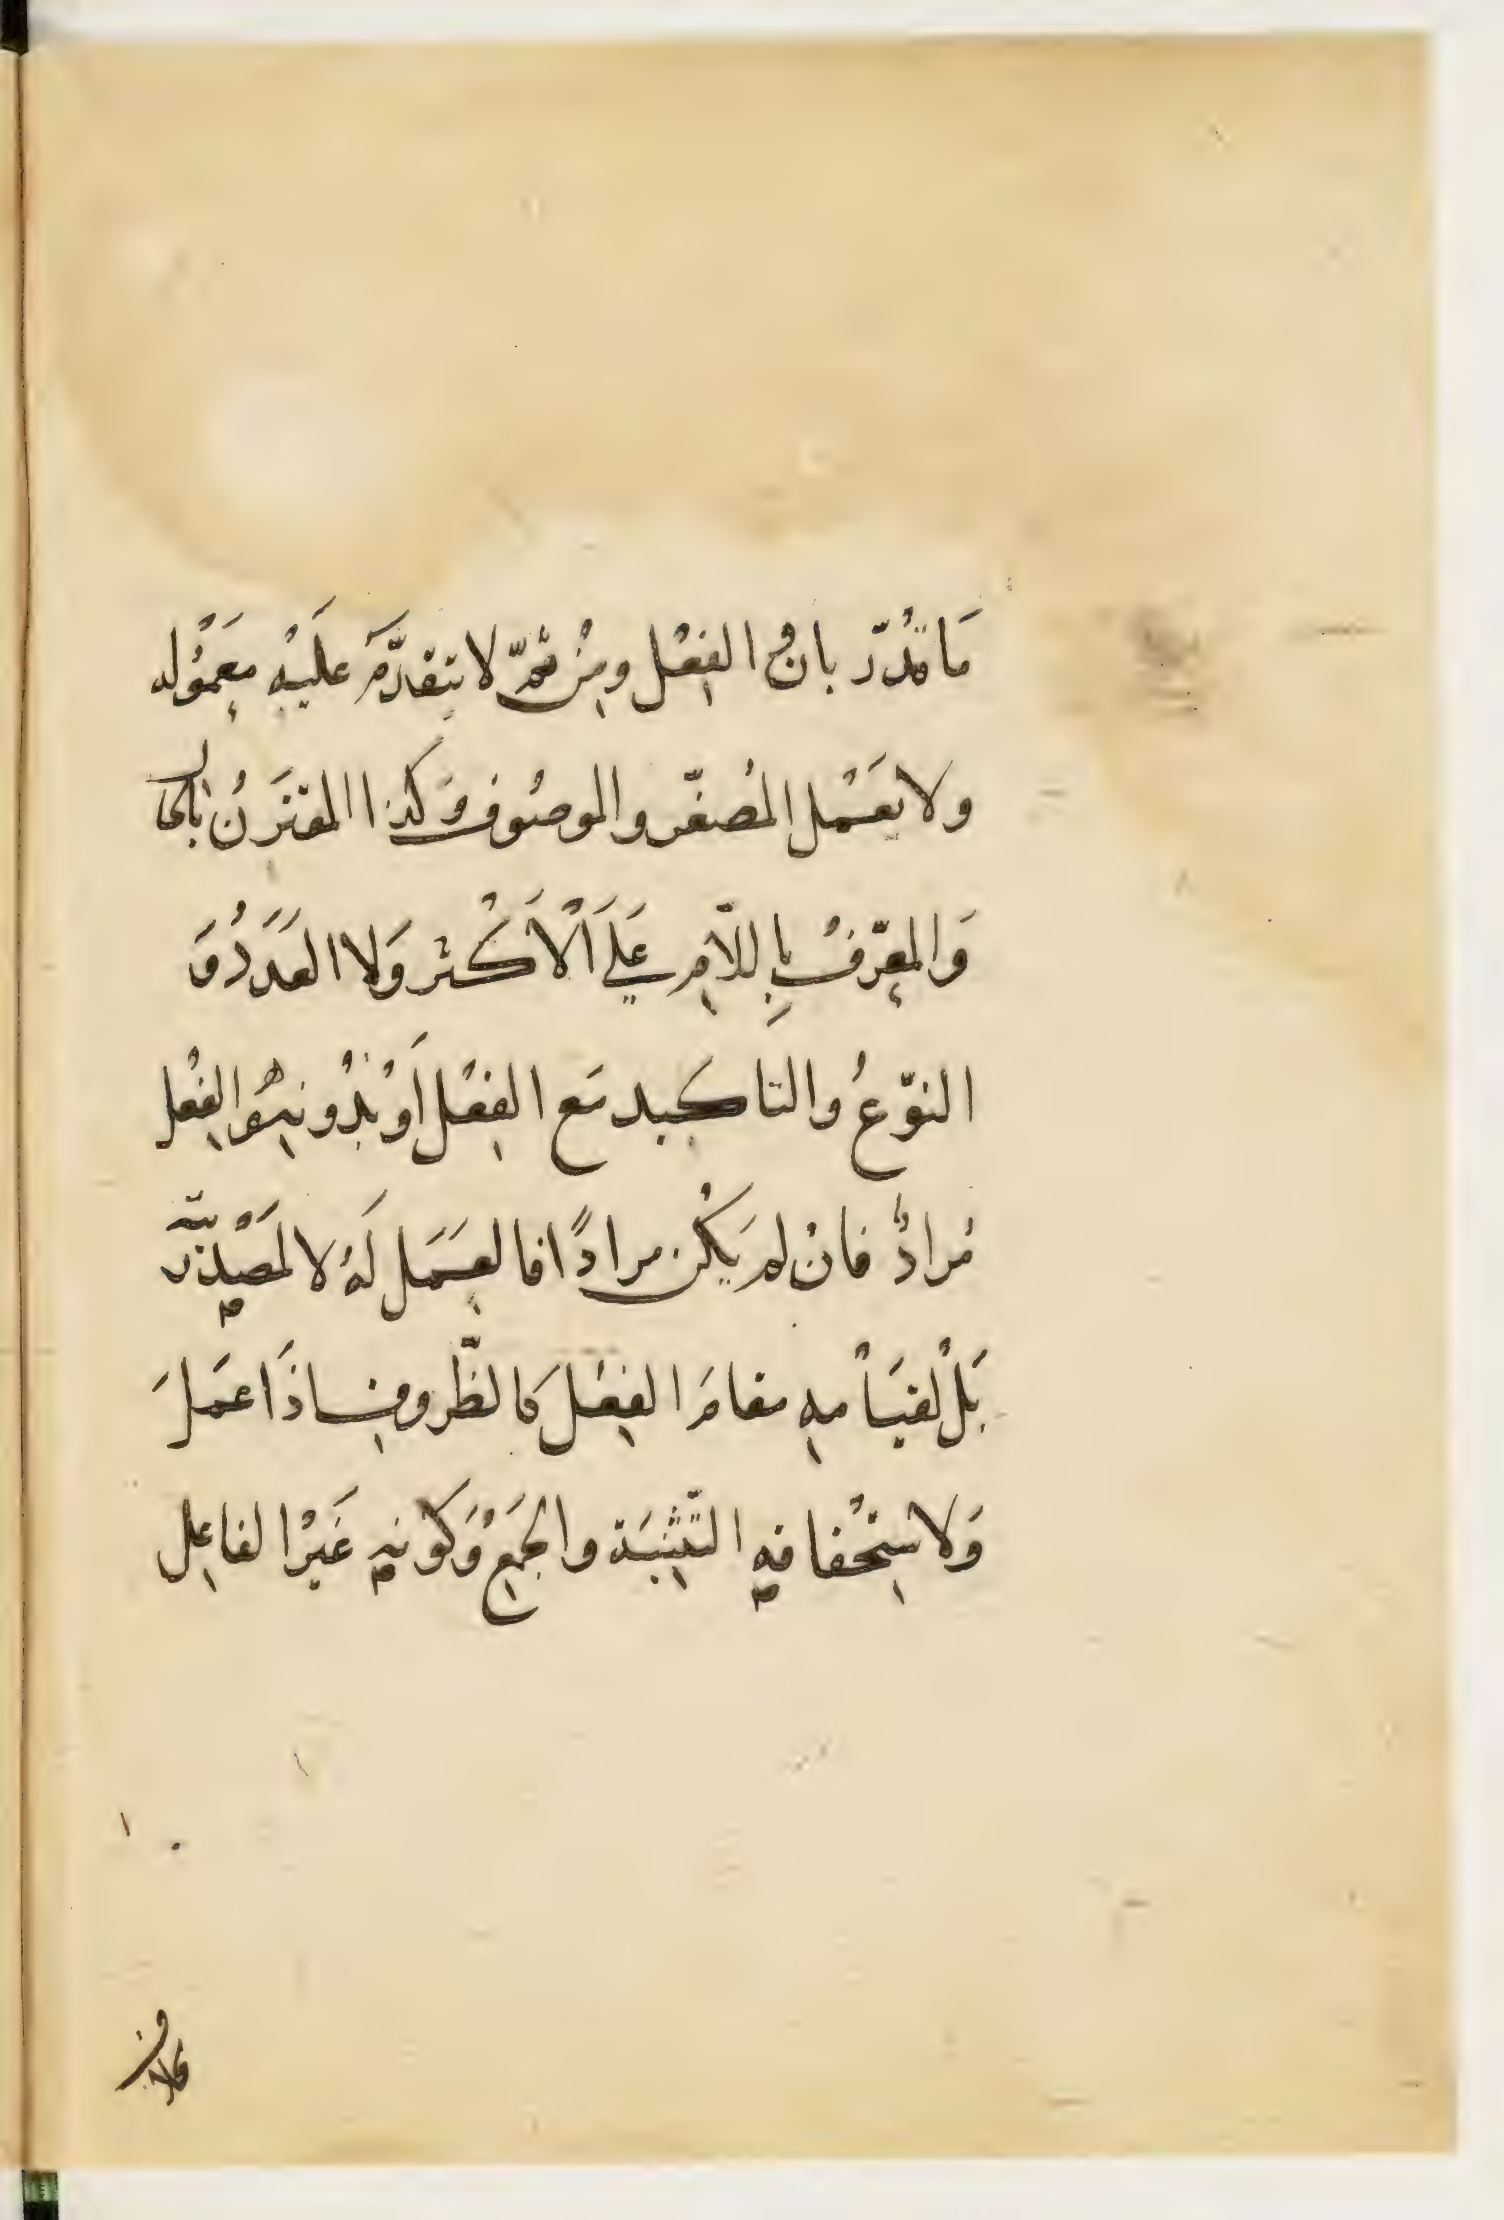 مَا قُدّر بانْ والفِعْل ومِنْ ثمّ لا يتقدَّمُ عَلَيْهِ معَمُوْلُه
ولا يَعْمَل المُصَغّر والموصُوف وَكذا المقترَنُ بالحال
وَالمعِرّفُ بِاللّامِ عَلَى اَلْاَكْثر وَلا العَدَدُ وَ
النوّعُ والتاكيد مَع الفِعْل اَوْ بدُونِهِ والفِعْل
مُرادٌ فانْ لم يَكُنْ مرادًا فالعَمَل لَهُ لا لمَصْدِريّته
بَلْ لقيَاْمهِ مقامَ الفِعْل كالظّروف اذَا عَمَلَ
وَلاسِتحْقاقهِ التّثِنيَة والجمَعِْ وَكوْنهِ غَيْرَ الفاعِل
بخلاف